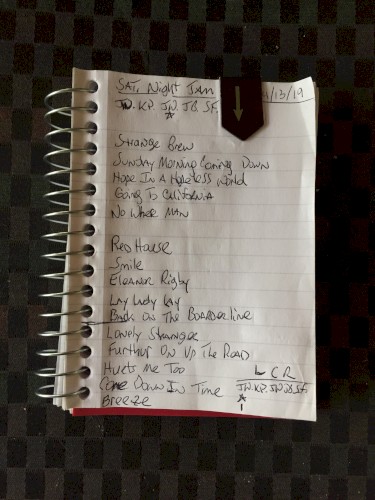 SAT. Night Jam 4/13/19
JW. KP. JN. JB. SF.
Strange Brew
Sunday Morning Coming Down
Hope In A Hopeless World
Going To California
No Where Man
Red House
Smile
Eleanor Rigby
Lay Lady Lay
Back On The Boarderline
Lonely Stranger
Further On Up The Road
Hurts Me Too
L C R
Come Down In Time
JW. KP. JN. JB. SF.
Breeze